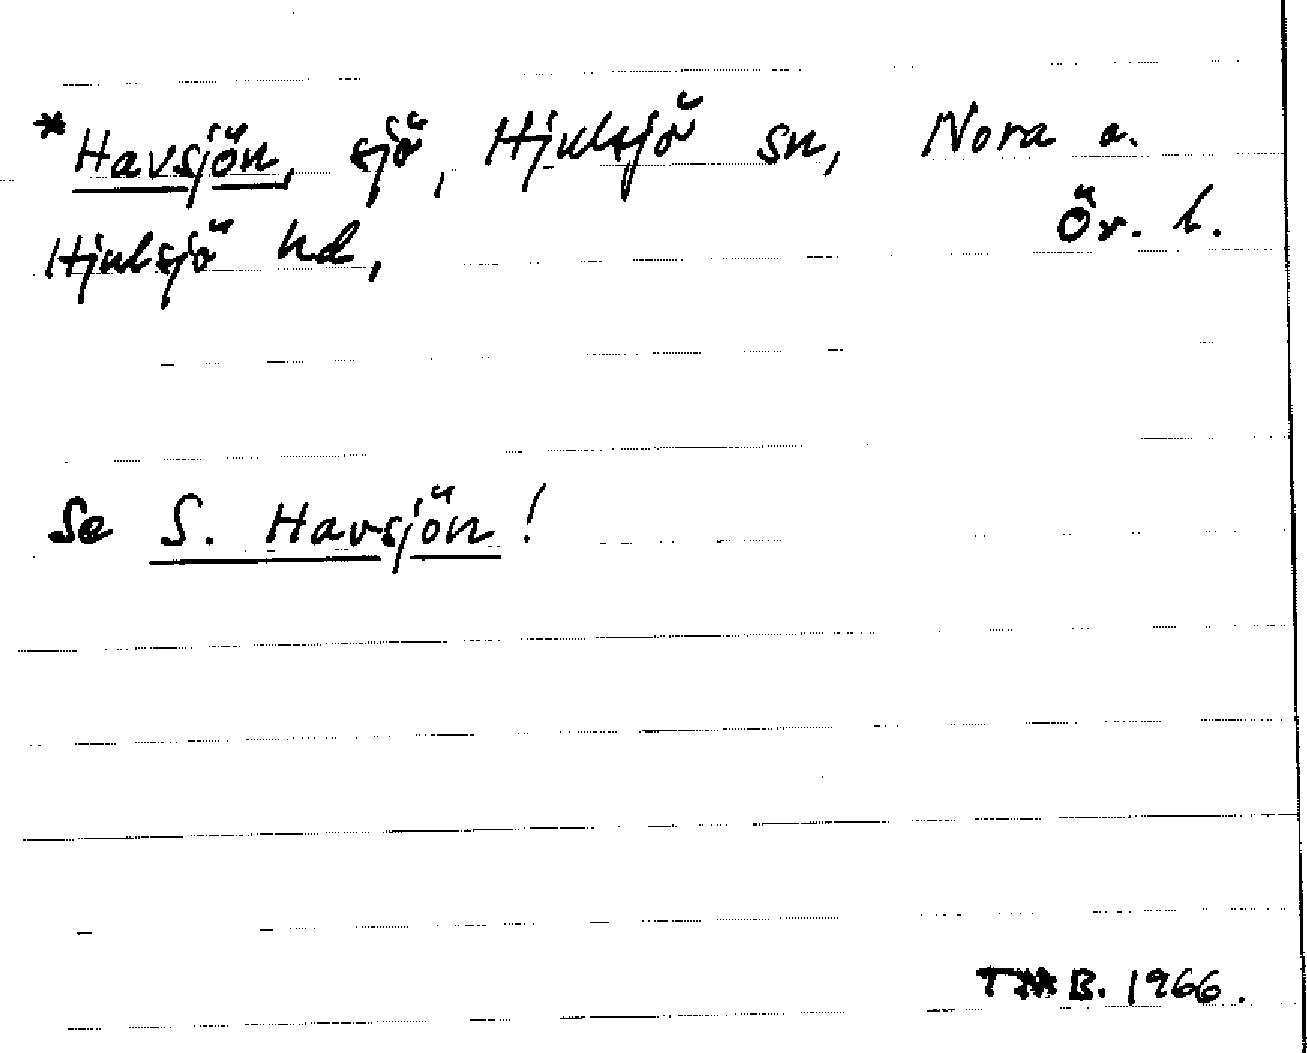 *Havsjön, sjö, Hjulsjö sn, Nora o.
Hjulsjö hd, Ör. l.
Se S. Havsjön!
B. 1966.